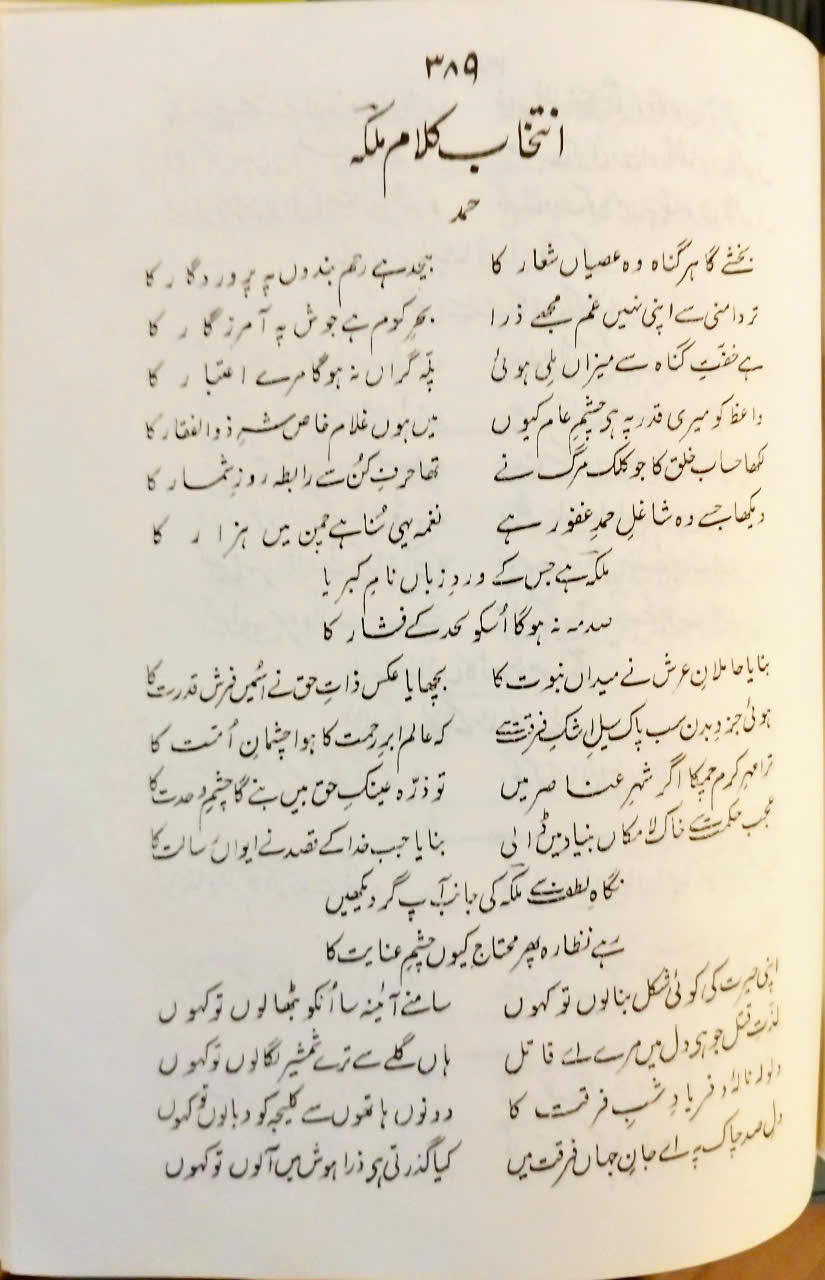 ۳۸۹
انتخاب کلام ملکہ
حمد
بخشے گا ہر گناہ وہ عصیاں شعار کا بیحد ہے رحم بندوں پہ پروردگار کا
تر دامنی سے اپنی نہیں غم مجھے ذرا بحرِ کرم ہے جوش پہ آمرزگار کا
ہے خفّتِ گناہ سے میزاں ملی ہوئی پلّہ گراں نہ ہوگا مرے اعتبار کا
واعظ کو میری قدر پہ ہی چشمِ عام کیوں میں ہوں غلام خاص شہِ ذوالفقار کا
لکھا حساب خلق کا جو کلک مرگ نے تھا حرفِ کُن سے رابطہ روزِ شمار کا
دیکھا جسے وہ شاغلِ حمدِ غفور ہے نغمہ یہی سُنا ہے چمن میں ہزار کا
ملکہ ہے جس کے وردِ زباں نامِ کبریا
صدمہ نہ ہوگا اُسکو لحد کے فشار کا
بنایا حاملانِ عرش نے میداں نبوت کا بچھایا عکس ذاتِ حق نے اسمیں فرش قدرت کا
ہوئی جزوِ بدن سب پاک سیلِ اشکِ فرقت سے کہ عالم ابرِ رحمت کا ہوا چشمانِ اُمّت کا
ترا مہرِ کرم چمکا اگر شہرِ عناصر میں تو ذرّہ عینکِ حق بیں بنے گا چشمِ وحدت کا
عجب حکمت سے خاک لامکاں بنیاد میں ڈالی بنایا جب خدا کے قصد نے ایواں رسالت کا
نگاہِ لطف سے ملکہ کی جانب آپ گر دیکھیں
رہے نظارہ پھر محتاج کیوں چشمِ عنایت کا
اپنی حیرت کی کوئی شکل بنا لوں تو کہوں سامنے آئینہ سا اُنکو بٹھا لوں تو کہوں
لذّتِ قتل جو ہی دل میں مرے اے قاتل ہاں گلے سے ترے شمشیر لگا لوں تو کہوں
ولولہ نالۂ و فریادِ شبِ فرقت کا دونوں ہاتھوں سے کلیجہ کو دبا لوں تو کہوں
دلِ صد چاک پہ اے جانِ جہاں فرقت میں کیا گذرتی ہی ذرا ہوش میں آلوں تو کہوں